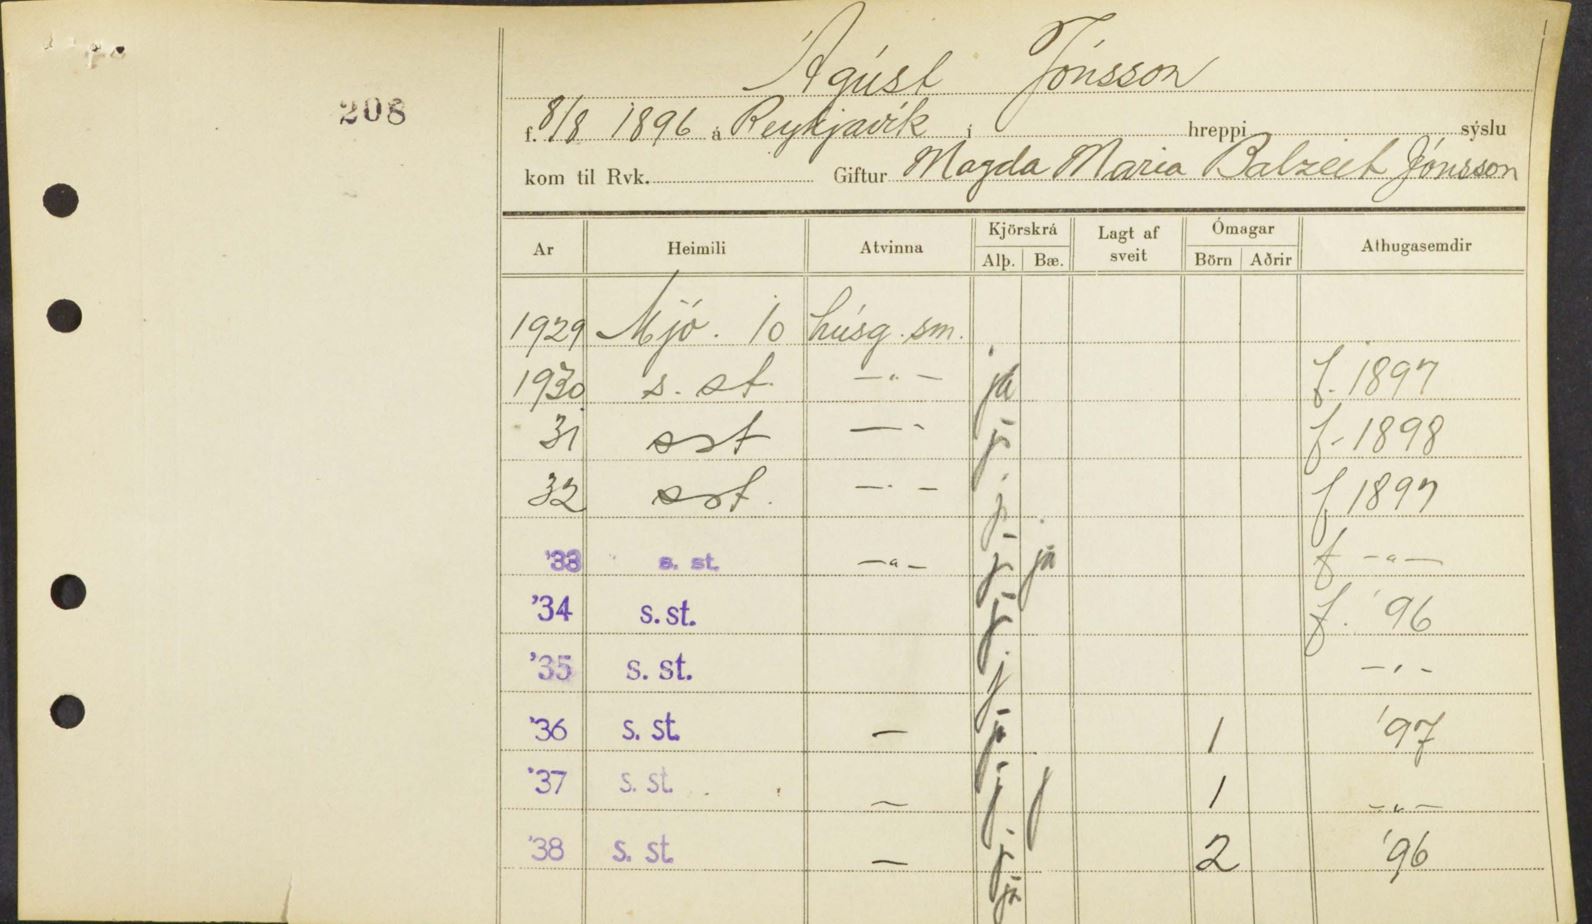 208
Ágúst Jónsson
f. 8/8 1896 á Reykjavík í hreppi sýslu
kom til Rvk. Giftur Magda Maria Balzeit Jónsson
Ar Heimili Atvinna Kjörskrá Lagt af sveit Ómagar Athugasemdir
Alþ. Bæ. Börn Aðrir
1929 Mjó. 10 húsg. sm.
1930 s. st. —"— já f. 1897
31 sst —"— já f. 1898
32 sst. —"— j f 1897
'33 s. st. —"— já já f —"—
'34 s. st. já f. '96
'35 s. st. j —"—
'36 s. st. — já 1 '97
'37 s. st. — j j 1 —"—
'38 s. st. — j 2 '96
já